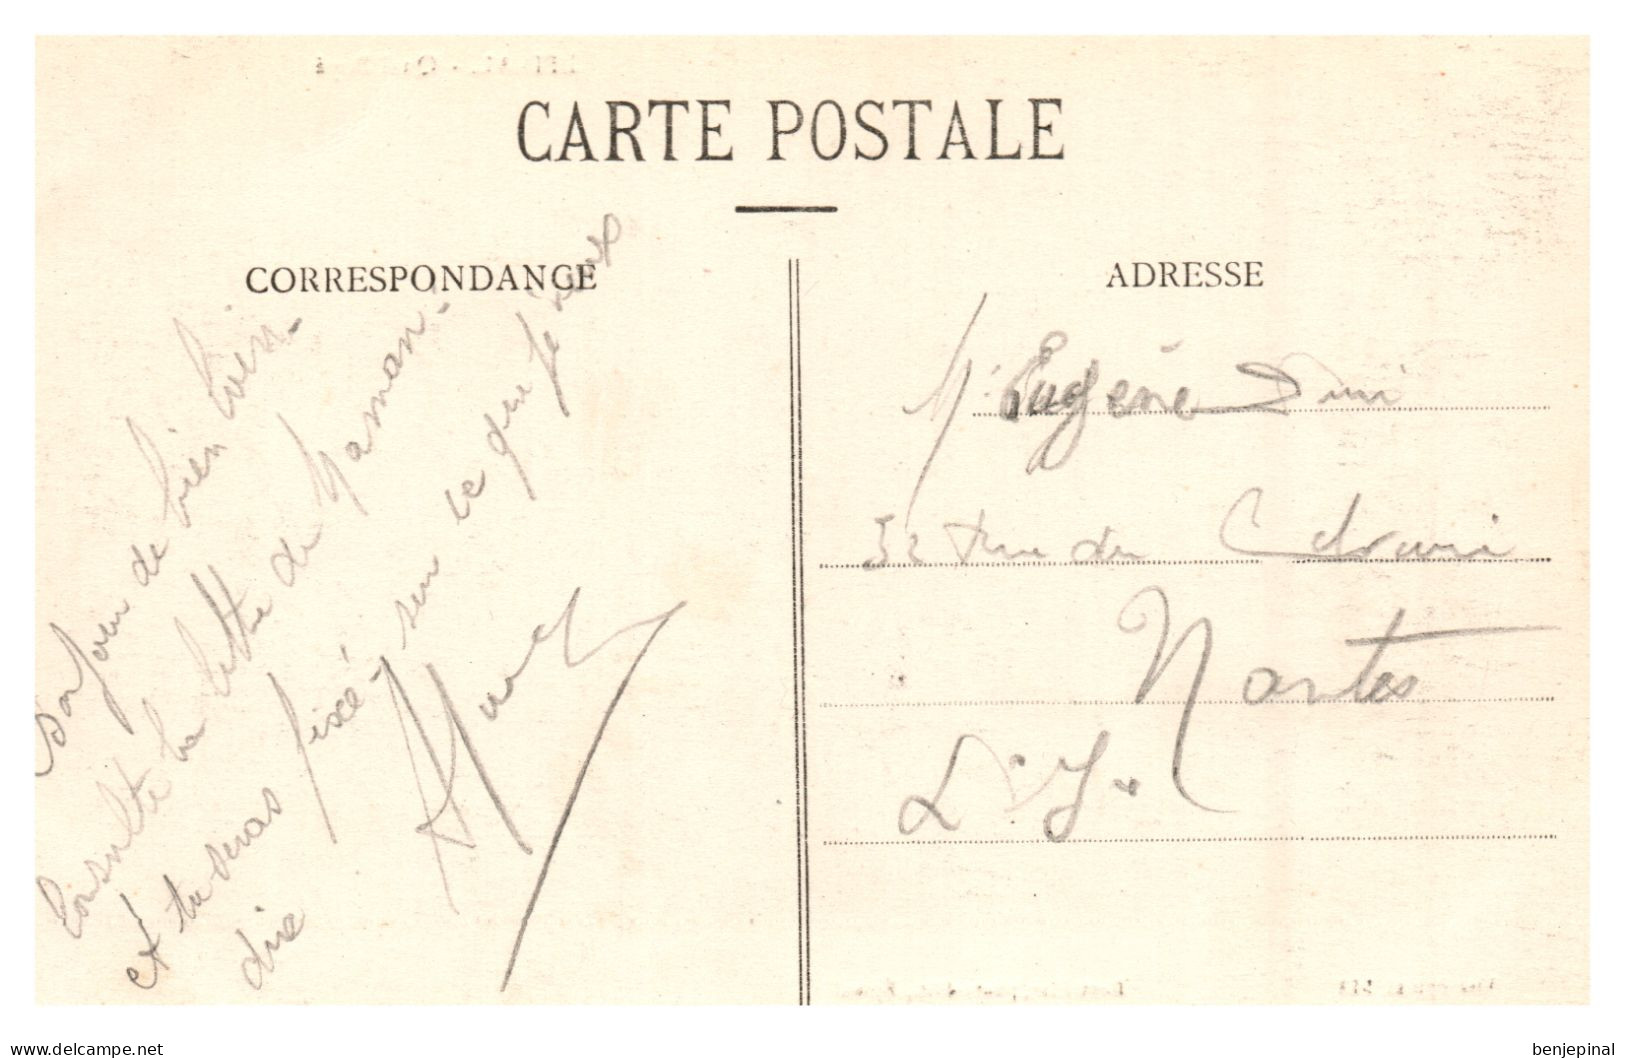 CARTE POSTALE
CORRESPONDANCE
ADRESSE
de bien loin -
Consulte la lettre de Maman -
et tu seras fixé sur ce que je veux
dire
Mr Eugène
32 rue du
Nantes
L. I.
www.delcampe.net
benjepinal